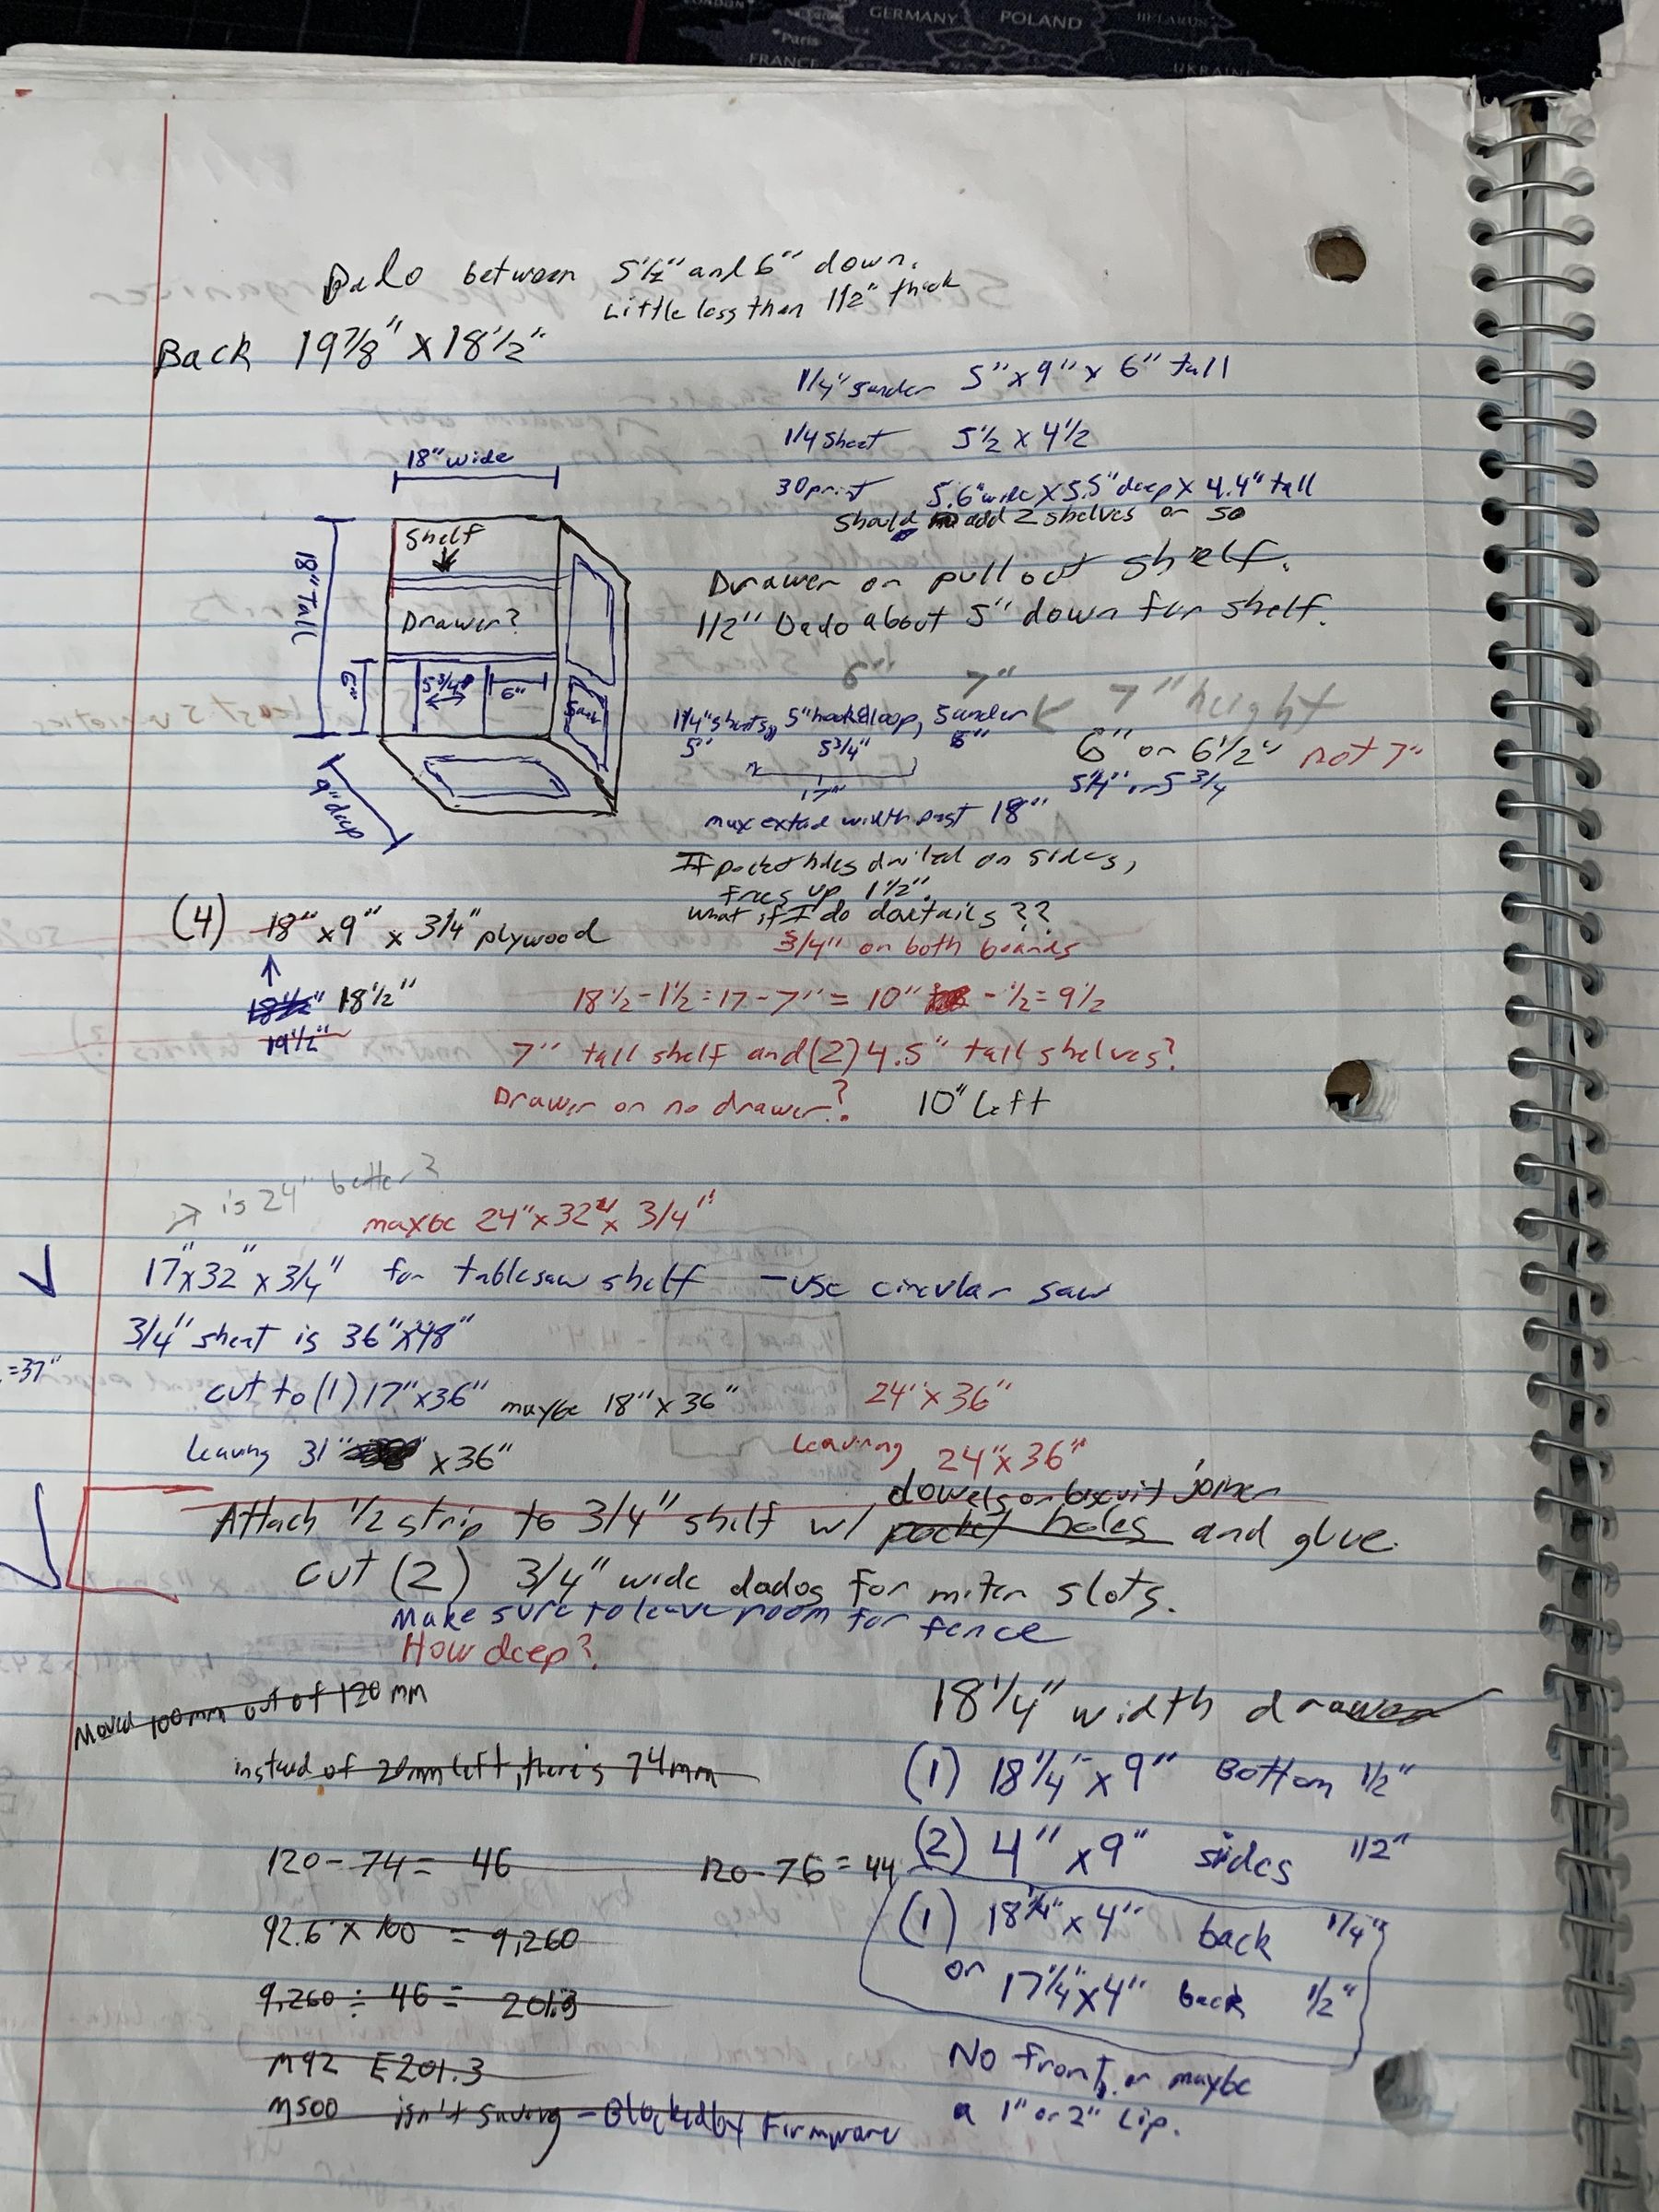 LONDON
GERMANY
POLAND
BELARUS
Paris
FRANCE
UKRAINE
Dado between 5 1/2" and 6" down.
Little less than 1/2" thick
Back 19 7/8" x 18 1/2"
1/4" sander 5" x 9" x 6" tall
1/4 Sheet 5 1/2 x 4 1/2
3D print 5.6" wide x 5.5" deep x 4.4" tall
Should add 2 shelves or so
18" wide
Shelf
18" Tall
Drawer?
6"
5 3/4"
6"
9" deep
Drawer or pull out shelf.
1/2" Dado about 5" down for shelf.
6" 7"
7" height
1/4" sheets, 5" hook & loop, Sander
5" 5 3/4" 6"
6" or 6 1/2" not 7"
17"
5 1/4" or 5 3/4
max extend width past 18"
If pocket holes drilled on sides,
frees up 1 1/2".
what if I do dovetails??
3/4" on both boards
(4) 18" x 9" x 3/4" plywood
18 1/2"
19 1/2"
18 1/2 - 1 1/2 = 17 - 7" = 10" - 1/2 = 9 1/2
7" tall shelf and (2) 4.5" tall shelves?
Drawer or no drawer? 10" Left
is 24" better?
maybe 24" x 32" x 3/4"
17" x 32" x 3/4" for tablesaw shelf - use circular saw
3/4" sheet is 36" x 48"
=37"
cut to (1) 17" x 36" maybe 18" x 36" 24" x 36"
Leaving 31" x 36" Leaving 24" x 36"
dowels or biscuit joiner
Attach 1/2 strip to 3/4" shelf w/ pocket holes and glue.
cut (2) 3/4" wide dados for miter slots.
Make sure to leave room for fence
How deep?
Moved 100mm out of 120mm
instead of 20mm left, there is 74mm
120 - 74 = 46 120 - 76 = 44
92.6 x 100 = 9,260
9,260 ÷ 46 = 201.3
M92 E201.3
M500 isn't saving - Blocked by Firmware
18 1/4" width drawer
(1) 18 1/4" x 9" Bottom 1/2"
(2) 4" x 9" sides 1/2"
(1) 18 1/4" x 4" back 1/4"
or 17 1/4" x 4" back 1/2"
No front, or maybe
a 1" or 2" Lip.